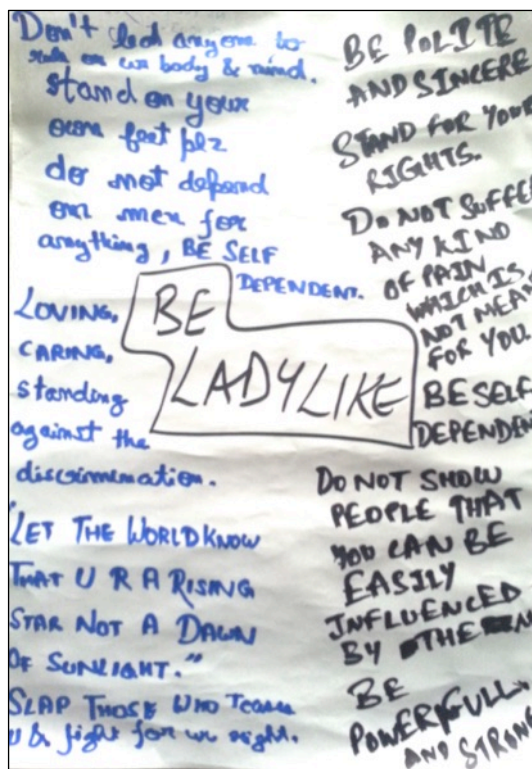 Don't led anyone to
rule on ur body & mind.
stand on your
own feet plz
do not depend
on men for
anything, BE SELF
DEPENDENT.
LOVING,
CARING,
standing
against the
discrimenation.
"LET THE WORLD KNOW
THAT U R A RISING
STAR NOT A DAWN
OF SUNLIGHT."
SLAP THOSE WHO
U & fight for ur right.
BE
LADYLIKE
BE POLITE
AND SINCERE
STAND FOR YOUR
RIGHTS.
DO NOT SUFFER
ANY KIND
OF PAIN
WHICH IS
NOT MEAN
FOR YOU
BE SELF
DEPENDEN
DO NOT SHOW
PEOPLE THAT
YOU CAN BE
EASILY
INFLUENCED
BY THE
BE
POWERFULL
AND STRONG